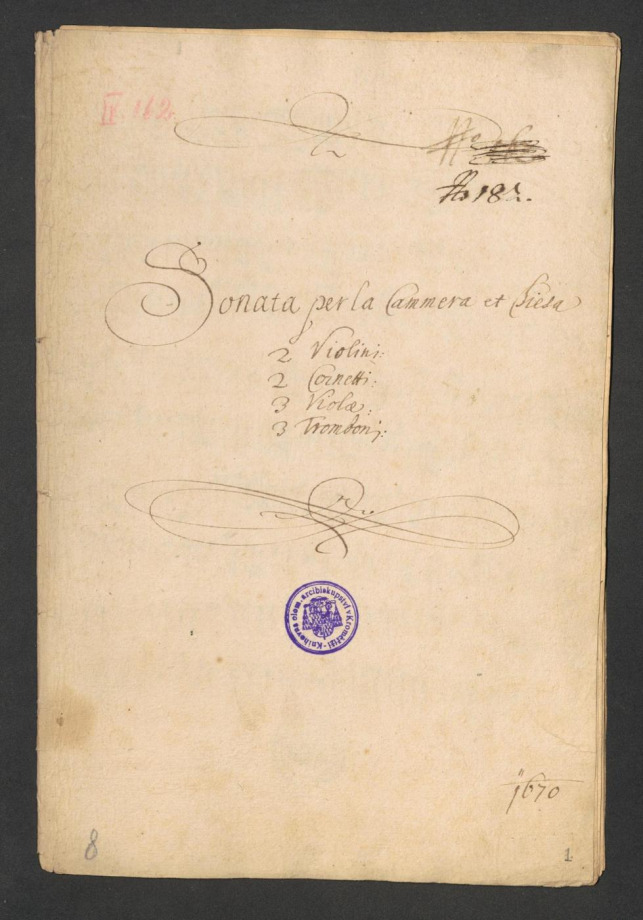 II 162.
No
No 182.
Sonata per la Cammera et Chiesa
2 Violini:
2 Cornetti:
3 Violæ:
3 Tromboni:
Knihovna olom. arcibiskupství v Kroměříži
1670
8
1